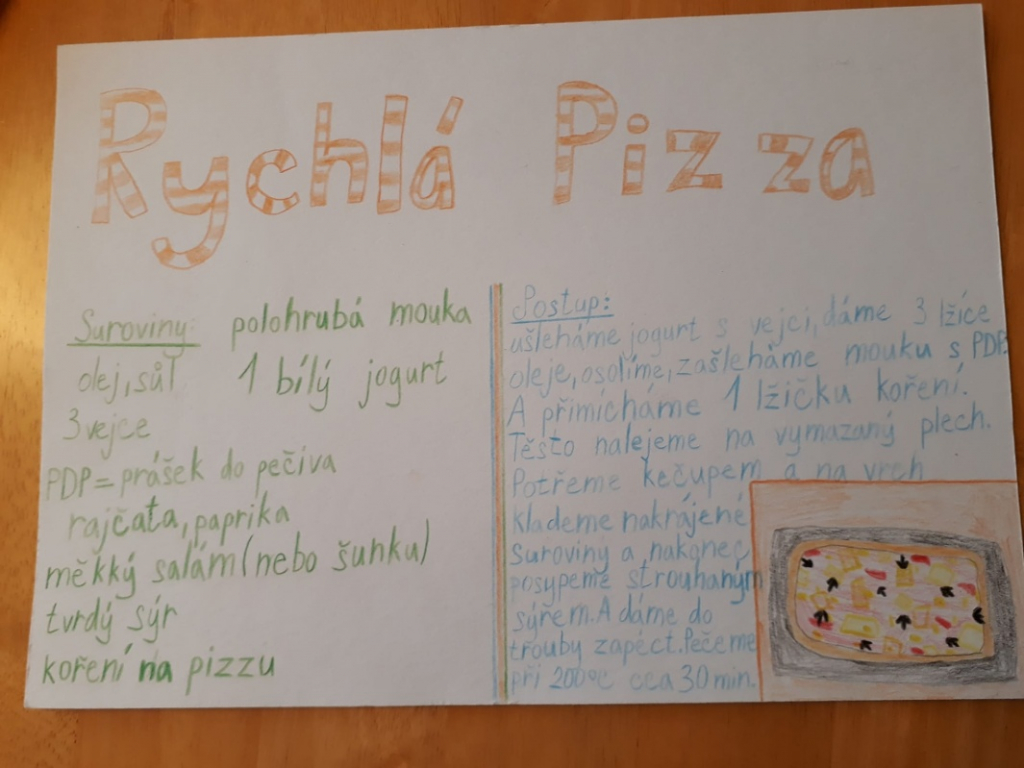 Rychlá Pizza
Suroviny: polohrubá mouka
olej, sůl 1 bílý jogurt
3 vejce
PDP = prášek do pečiva
rajčata, paprika
měkký salám (nebo šunku)
tvrdý sýr
koření na pizzu
Postup:
ušleháme jogurt s vejci, dáme 3 lžíce
oleje, osolíme, zašleháme mouku s PDP.
A přimícháme 1 lžičku koření.
Těsto nalejeme na vymazaný plech.
Potřeme kečupem a na vrch
klademe nakrájené
suroviny a nakonec
posypeme strouhaným
sýřem. A dáme do
trouby zapéct. Pečeme
při 200°C cca 30 min.